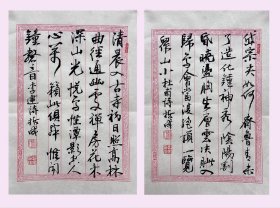 岱宗夫如何齊魯青未
了造化鍾神秀陰陽割
昏曉盪胸生層雲決眦入
歸鳥會當凌絕頂一覽
眾山小杜甫詩
清晨入古寺初日照高林
曲徑通幽處禪房花木
深山光悅鳥性潭影空人
心萬籟此俱寂惟聞
鐘磬音常建詩